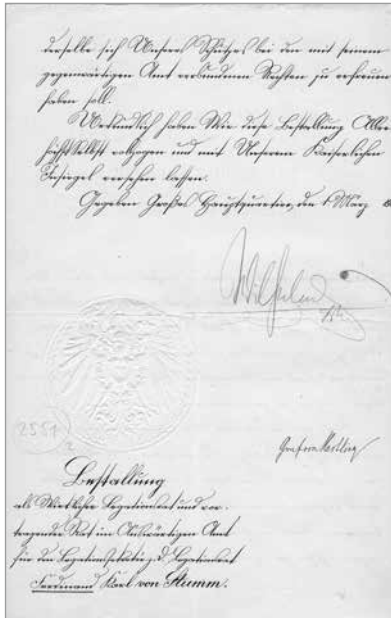 derselbe sich Unseres Schutzes bei den mit seinem
gegenwärtigen Amt verbundenen Rechten zu erfreuen
haben soll.
Urkundlich haben Wir diese Bestallung Aller
höchstselbst vollzogen und mit Unserem Kaiserlichen
Insiegel versehen lassen.
Gegeben Großes Hauptquartier, den 1. März
Wilhelm
2551
2
Graf von Hertling
Bestallung
als Wirklicher Legationsrat und vor-
tragender Rat im Auswärtigen Amt
für den Legationssekretär z. D. Legationsrat
Ferdinand Karl von Stumm.